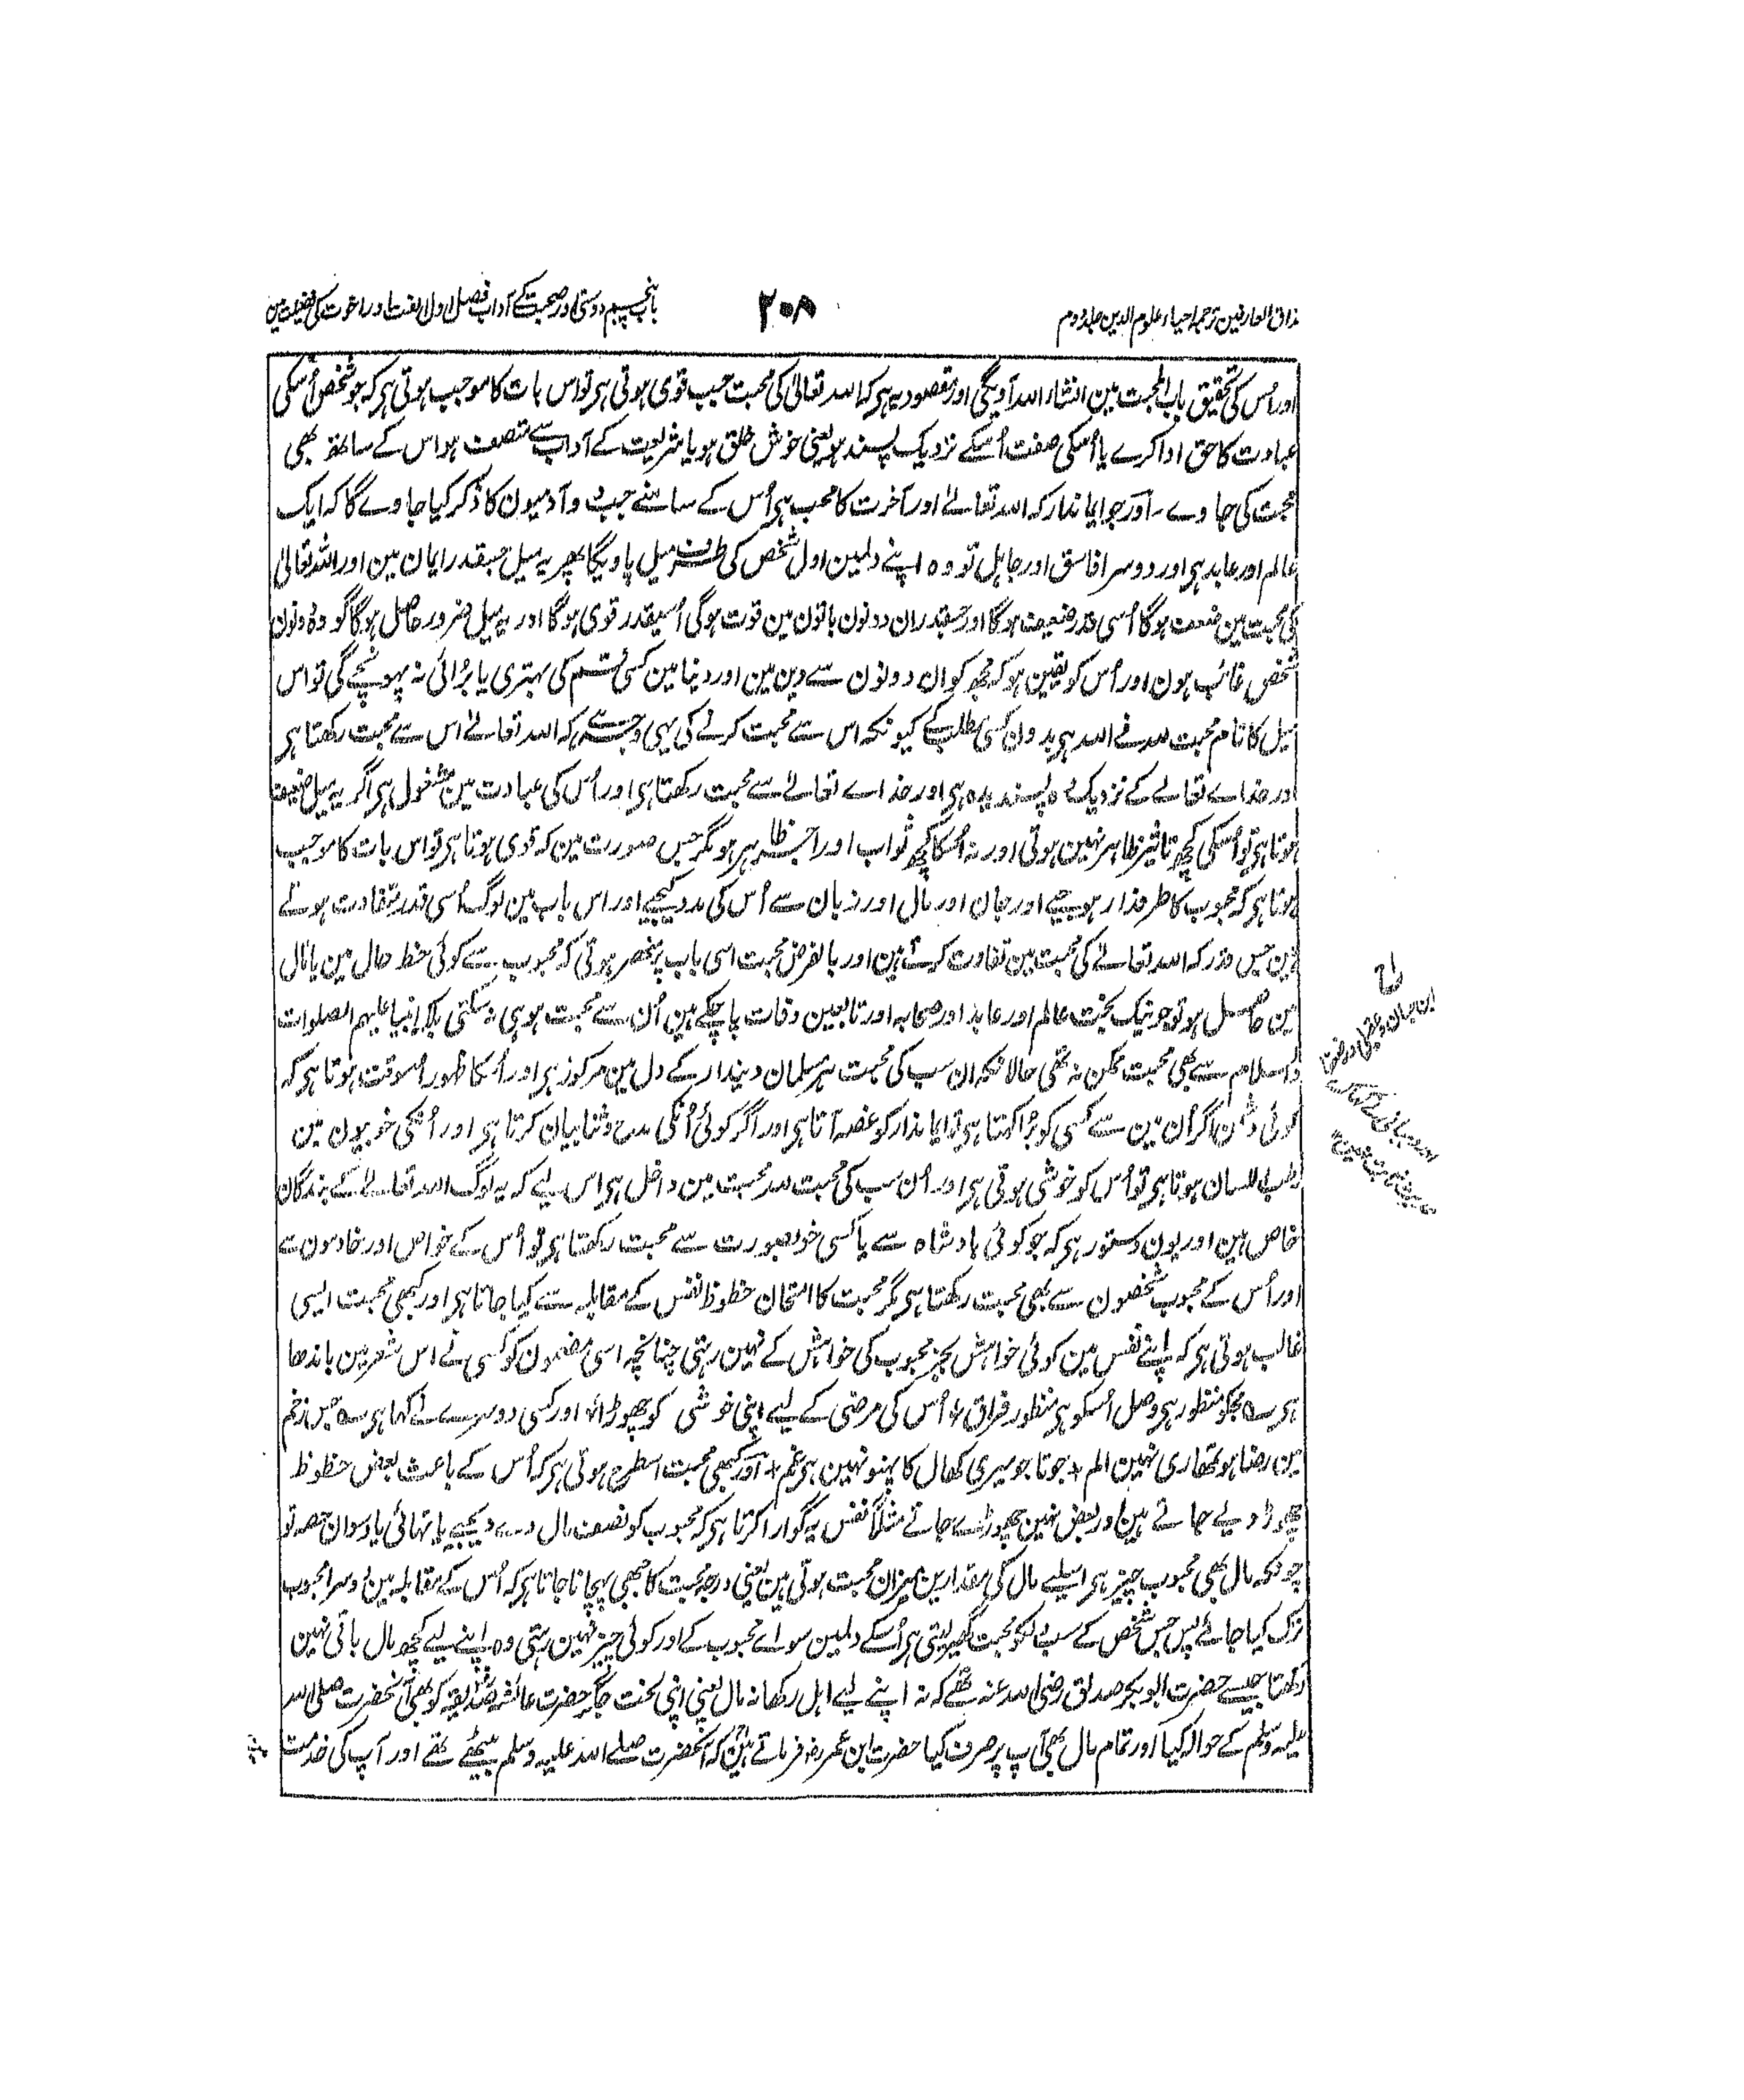 مذاق العارفین ترجمہ احیاء علوم الدین جلد دوم
۲۰۸
باب پنجم دوستی اور صحبت کے آداب فصل اول الفت اور اخوت کی فضیلت مین
اور اُس کی تحقیق باب المحبت مین انشاء اللہ آویگی اور مقصود یہ ہی کہ اللہ تعالیٰ کی محبت جب قوی ہوتی ہی تو اس بات کا موجب ہوتی ہی کہ جو شخص اُسکی
عبادت کا حق ادا کرے یا اُسکی صفت اُسکے نزدیک پسند ہو یعنی خوش خلق ہو یا شریعت کے آداب سے متصف ہو اس کے ساتھ بھی
محبت کی جاوے ۔ اور جو ایماندار کہ اللہ تعالےٰ اور آخرت کا محب ہی اُس کے سامنے جب دو آدمیون کا ذکر کیا جاوے گا کہ ایک
عالم اور عابد ہی اور دوسرا فاسق اور جاہل تو وہ اپنے دلمین اول شخص کی طرف میل پاویگا پھر یہ میل جسقدر ایمان مین اور اللہ تعالیٰ
کی محبت مین ضعف ہوگا اُسی قدر ضعیف ہوگا اور جسقدر ان دونون باتون مین قوت ہوگی اُسیقدر قوی ہوگا اور یہ میل ضرور حاصل ہوگا گو وہ دونون
شخص غائب ہون اور اُس کو یقین ہو کہ مجھ کو ان دونون سے دین مین اور دنیا مین کسی قسم کی بہتری یا بُرائی نہ پہونچے گی تو اس
میل کا نام محبت للہ فے اللہ ہی بدون کسی مطلب کے کیونکہ اس سے محبت کرنے کی یہی وجہ ہے کہ اللہ تعالےٰ اس سے محبت رکھتا ہی
اور خداے تعالےٰ کے نزدیک وہ پسندیدہ ہی اور خداے تعالےٰ سے محبت رکھتا ہی اور اُس کی عبادت مین مشغول ہی اگر یہ میل ضعیف
ہوتا ہی تو اُسکی کچھ تاثیر ظاہر نہین ہوتی اور نہ اُسکا کچھ ثواب اور اجر ظاہر ہو مگر جس صورت مین کہ قوی ہوتا ہی تو اس بات کا موجب
ہوتا ہی کہ محبوب کا طرفدار ہوجیے اور جان اور مال اور زبان سے اُس کی مدد کیجیے اور اس باب مین لوگ اُسی قدر متفاوت ہوتے
ہین جس قدر کہ اللہ تعالےٰ کی محبت مین تفاوت کرتے ہین اور بالفرض محبت اسی باب پر منحصر ہوتی کہ محبوب سے کوئی حظ حال مین یا مآل
مین حاصل ہو تو جو نیک بخت عالم اور عابد اور صحابہ اور تابعین وفات پاچکے ہین اُن سے محبت ہو ہی نہ سکتی بلکہ انبیا علیہم الصلوات
والسلام سے بھی محبت ممکن نہ تھی حالانکہ ان سب کی محبت ہر مسلمان دیندار کے دل مین مرکوز ہی اور اُسکا ظہور اُسوقت ہوتا ہی کہ
کوئی دشمن اگر اُن مین سے کسی کو بُرا کہتا ہی تو ایماندار کو غصہ آتا ہی اور اگر کوئی اُنکی مدح و ثنا بیان کرتا ہی اور اُنکی خوبیون مین
رطب اللسان ہوتا ہی تو اُس کو خوشی ہوتی ہی اور اُن سب کی محبت للہ محبت مین داخل ہی اس لیے کہ یہ لوگ اللہ تعالےٰ کے بندگان
خاص ہین اور یون دستور ہی کہ جو کوئی بادشاہ سے یا کسی خوبصورت سے محبت رکھتا ہی تو اُس کے خواص اور خادمون سے
اور اُس کے محبوب شخصون سے بھی محبت رکھتا ہی مگر محبت کا امتحان حظوظ نفس کے مقابلہ سے کیا جاتا ہی اور کبھی محبت ایسی
غالب ہوتی ہی کہ اپنے نفس مین کوئی خواہش بجز محبوب کی خواہش کے نہین رہتی چنانچہ اسی مضمون کو کسی نے اس شعر مین باندھا
ہی ۵ مجکو منظور ہی وصل اُسکو ہی منظور فراق + اُس کی مرضی کے لیے اپنی خوشی کو چھوڑا اور کسی دوسرے نے کہا ہی ۵ جس زخم
مین رضا ہو تمھاری نہین الم + جوتا جو میری کھال کا پہنو نہین ہی غم + اور کبھی محبت اسطرح ہوتی ہی کہ اُس کے باعث بعض حظوظ
چھوڑ دیے جاتے ہین اور بعض نہین چھوڑے جاتے مثلاً نفس یہ گوارا کرتا ہی کہ محبوب کو نصف مال دے دیجیے یا تہائی یا دسوان حصہ تو
چونکہ مال بھی محبوب چیز ہی اسلیے مال کی مقدارین میزان محبت ہوتی ہین یعنی درجہ محبت کا جبھی پہچانا جاتا ہی کہ اُس کے مقابلہ مین دوسرا محبوب
ترک کیا جائے پس جس شخص کے سب دلکو محبت گھیر لیتی ہی اُسکے دلمین سواے محبوب کے اور کوئی چیز نہین رہتی وہ اپنے لیے کچھ مال باقی نہین
رکھتا جیسے حضرت ابوبکر صدیق رضی اللہ عنہ تھے کہ نہ اپنے لیے اہل رکھا نہ مال یعنی اپنی لخت جگر حضرت عائشہ صدیقہ کو بھی آنحضرت صلی اللہ
علیہ وسلم کے حوالہ کیا اور تمام مال بھی آپ پر صرف کیا حضرت ابن عمر رضہ فرماتے ہین کہ آنحضرت صلے اللہ علیہ وسلم بیٹھے تھے اور آپ کی خدمت